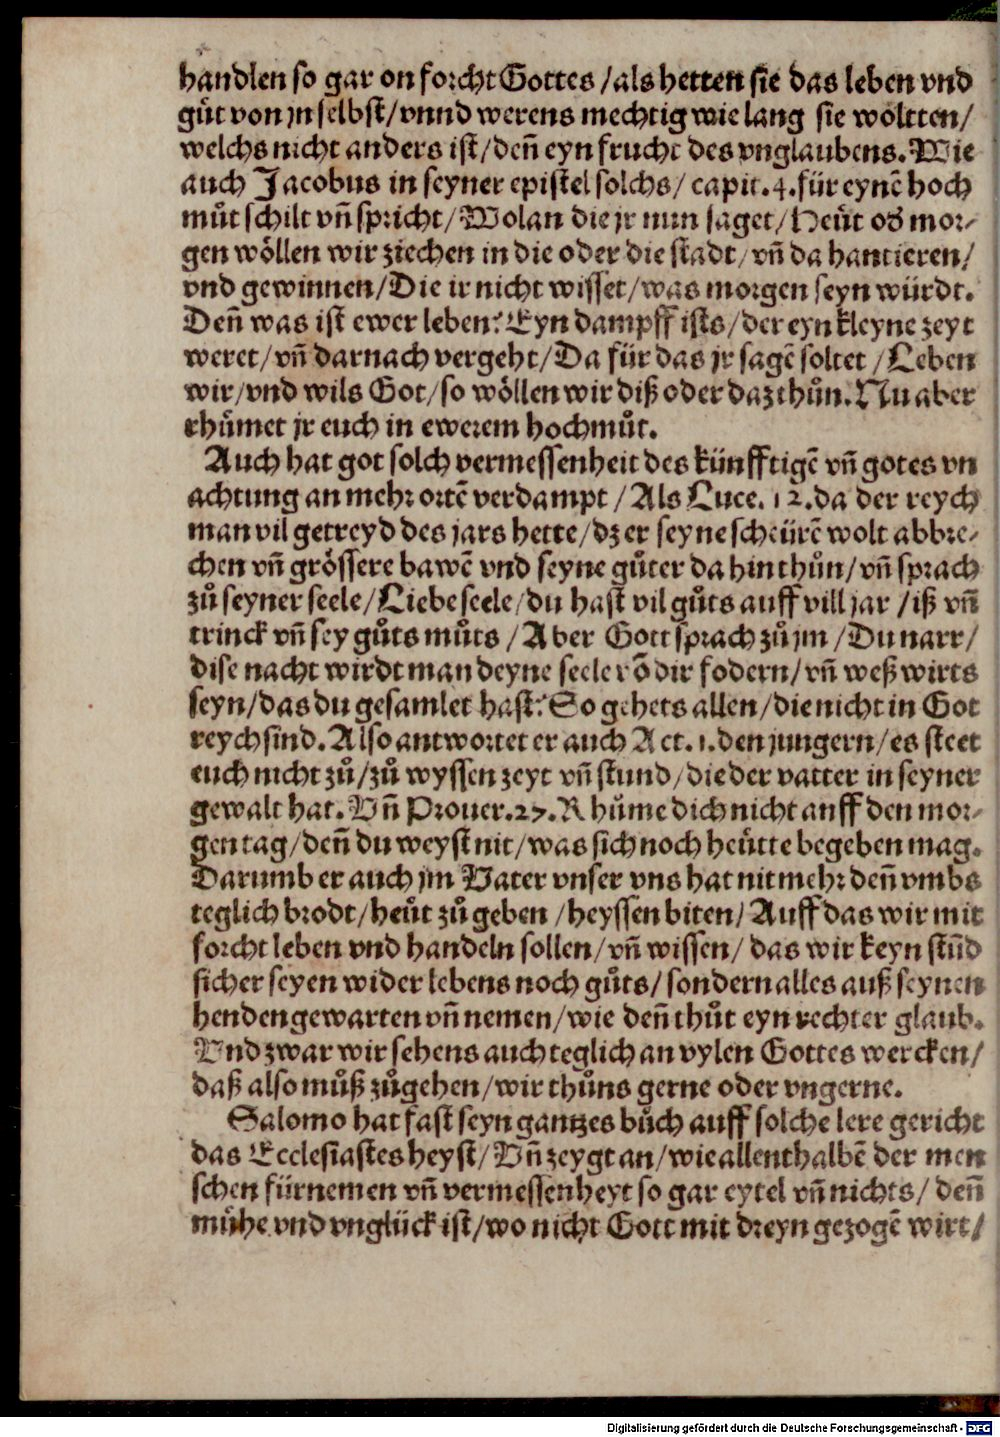 handlen so gar on forcht Gottes / als hetten sie das leben vnd
guͤt von jn selbst / vnnd werens mechtig wie lang sie woͤltten /
welchs nicht anders ist / deñ eyn frucht des vnglaubens. Wie
auch Jacobus in seyner epistel solchs / capit. 4. für eynē hoch
muͦt schilt vñ spricht / Wolan die jr nun saget / Heuͤt od' mor-
gen woͤllen wir ziechen in die oder die stadt / vñ da hantieren /
vnd gewinnen / Die ir nicht wisset / was morgen seyn wuͤrdt.
Deñ was ist ewer leben? Eyn dampff ists / der eyn kleyne zeyt
weret / vñ darnach vergeht / Da für das jr sagē soltet / Leben
wir / vnd wils Got / so woͤllen wir diß oder daz thuͦn. Nu aber
rhuͤmet jr euch in ewerem hochmuͦt.
Auch hat got solch vermessenheit des künfftigē vñ gotes vn
achtung an mehr ortē verdampt / Als Luce. 12. da der reych
man vil getreyd des jars hette / dz er seyne scheürē wolt abbre-
chen vñ groͤssere bawē vnd seyne guͤter da hin thuͦn / vñ sprach
zuͦ seyner seele / Liebe seele / du hast vil guͦts auff vill jar / iß vñ
trinck vñ sey guͦts muͦts / Aber Gott sprach zuͦ jm / Du narr /
dise nacht wirdt man deyne seele vō dir fodern / vñ weß wirts
seyn / das du gesamlet hast? So gehets allen / die nicht in Got
reych sind. Also antwortet er auch Act. 1. den jungern / es steet
euch nicht zuͦ / zuͦ wyssen zeyt vñ stund / die der vatter in seyner
gewalt hat. Vñ Prouer. 27. Rhuͤme dich nicht auff den mor-
gen tag / deñ du weyst nit / was sich noch heuͤtte begeben mag.
Darumb er auch jm Vater vnser vns hat nit mehr deñ vmbs
teglich brodt / heuͤt zuͦ geben / heyssen biten / Auff das wir mit
forcht leben vnd handeln sollen / vñ wissen / das wir keyn stūd
sicher seyen wider lebens noch guͦts / sondern alles auß seynen
henden gewarten vñ nemen / wie deñ thuͦt eyn rechter glaub.
Vnd zwar wir sehens auch teglich an vylen Gottes wercken /
daß also muͦß zuͦgehen / wir thuͦns gerne oder vngerne.
Salomo hat fast seyn gantzes buͦch auff solche lere gericht
das Ecclesiastes heyst / Vñ zeygt an / wie allenthalbē der men
schen fürnemen vñ vermessenheyt so gar eytel vñ nichts / deñ
muͤhe vnd vnglück ist / wo nicht Gott mit dreyn gezogē wirt /
Digitalisierung gefördert durch die Deutsche Forschungsgemeinschaft - DFG